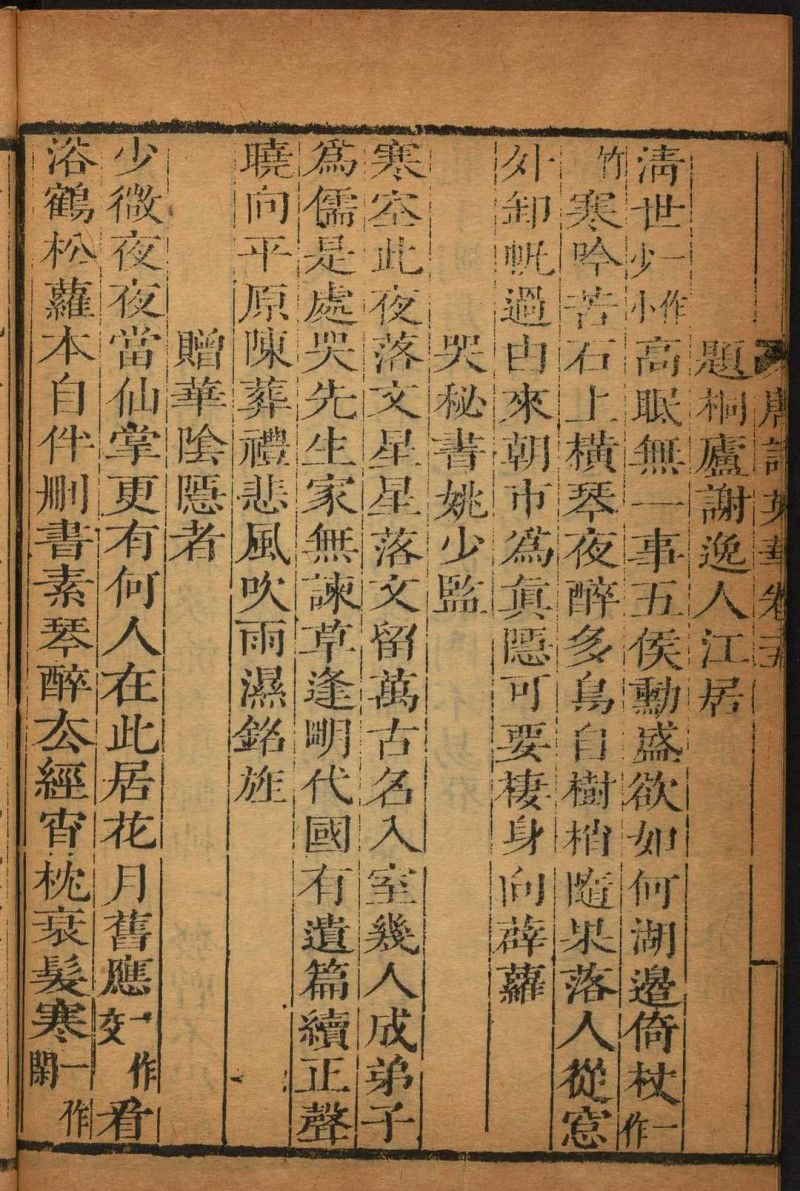 唐詩英華卷五
題桐廬謝逸人江居
淸世少一作小高眠無一事五侯勳盛欲如何湖邉倚杖一作
竹寒吟苦石上橫琴夜醉多鳥自樹梢隨果落人從窻
外卸帆過由來朝市爲眞隱可要棲身向薜蘿
哭秘書姚少監
寒空此夜落文星星落文留萬古名入室幾人成弟子
爲儒是處哭先生家無諫草逢明代國有遺篇續正聲
曉向平原陳葬禮悲風吹雨濕銘旌
贈華陰隱者
少微夜夜當仙掌更有何人在此居花月舊應一作交看
浴鶴松蘿本自伴刪書素琴醉去經宵枕衰髮寒一作閑